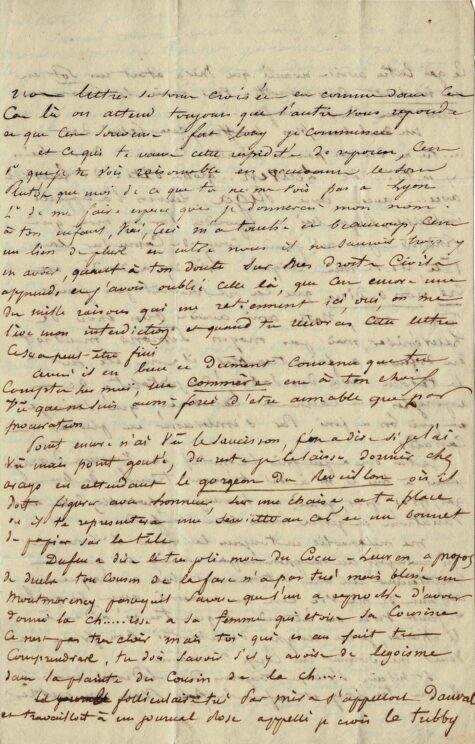 nos lettres se sont croisées et comme dans ce
Cas là on attend toujours que l'autre vous reponde
ce que c'est souvent fort long je commence
et ce qui te vaut cette rapidité de reponse, C'est
1° que je te vois raisonable en
plutôt que moi de ce que tu ne me vois pas a Lyon
2° de me faire que je donnerai mon nom
à ton enfant, Vrai, Ceci m'a touché et beaucoup, C'est
un lien de plus entre nous il ne saurait trop y
en avoir, quant à ton doute sur mes Droits Civils
apprends que j'avois oublié celle là, que c'est encore une
des mille raisons qui me retiennent ici, ou on me
lève mon interdiction et quand tu recevras cette lettre
ce sera peut-être fini
ainsi il est bien et Dument Convenu que tu
Compte sur moi, une commère à ton choix
Vû que ne suis aussi forcé d'etre aimable que par
procuration
Point encore n'ai Vû le saucisson, c'en a dire si je l'ai
Vû mais point gouté, du reste je le laisse dormir chez
en attendant le gorgeon du Reveillon où il
doit figurer avec honneur sur une chaise a ta place
ou il te representera une serviette au col et un bonnet
de papier sur la tête
Dufux a dit être joli mon du Cocu - Leuron, a propos
de duels ton Cousin de la fare n'a pas tué mais blessé un
Montmorency parcequil savoit que l'un a reproché d'avoir
donné la ch.....isse a sa femme qui étoit sa Cousine
Ce n'est pas très clair mais toi qui es au fait tu
Comprendras, tu dois savoir s'il y avoit de l'egoïsme
dans la plainte du Cousin de la ch...
Le folliculaire tué par mire s'appelloit Dauval
et travailloit à un journal Rose appellé je crois le tubby